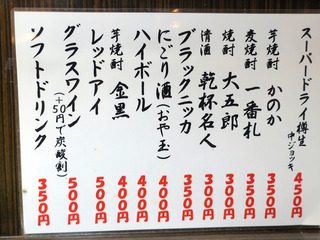 スーパードライ樽生
中ジョッキ
450円
芋焼酎
かのか
350円
麦焼酎
一番札
350円
焼酎
大五郎
300円
清酒
乾杯名人
300円
ブラックニッカ
350円
にごり酒(おや玉)
400円
ハイボール
400円
芋焼酎
金黒
400円
レッドアイ
500円
グラスワイン
(+50円で炭酸割)
500円
ソフトドリンク
350円